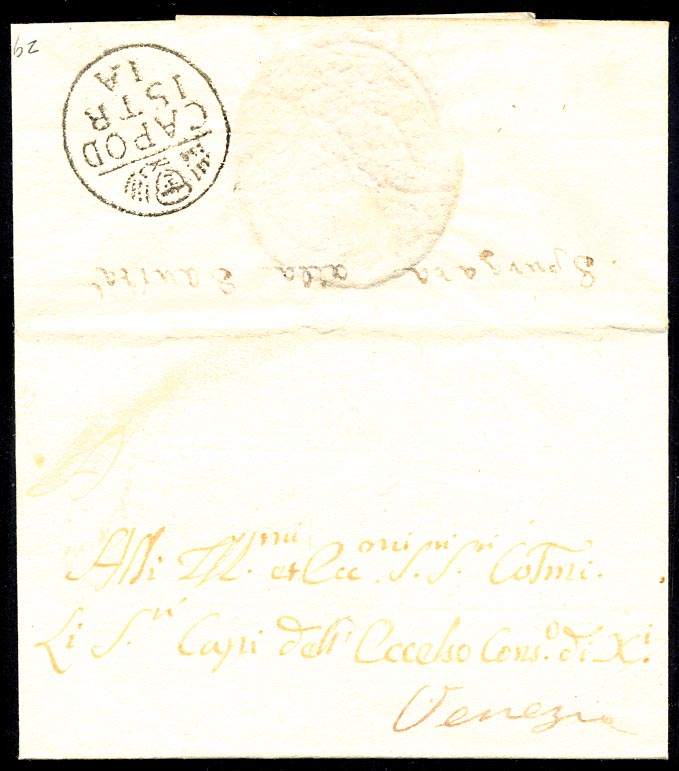 29
CAPOD
ISTR
IA
Spurgata alla Sanità
Alli Ill.mi et Ecc.mi S.ri S.ri Colmi.
Li S.ri Capi dell' Eccelso Cons.o di X.i
Venezia